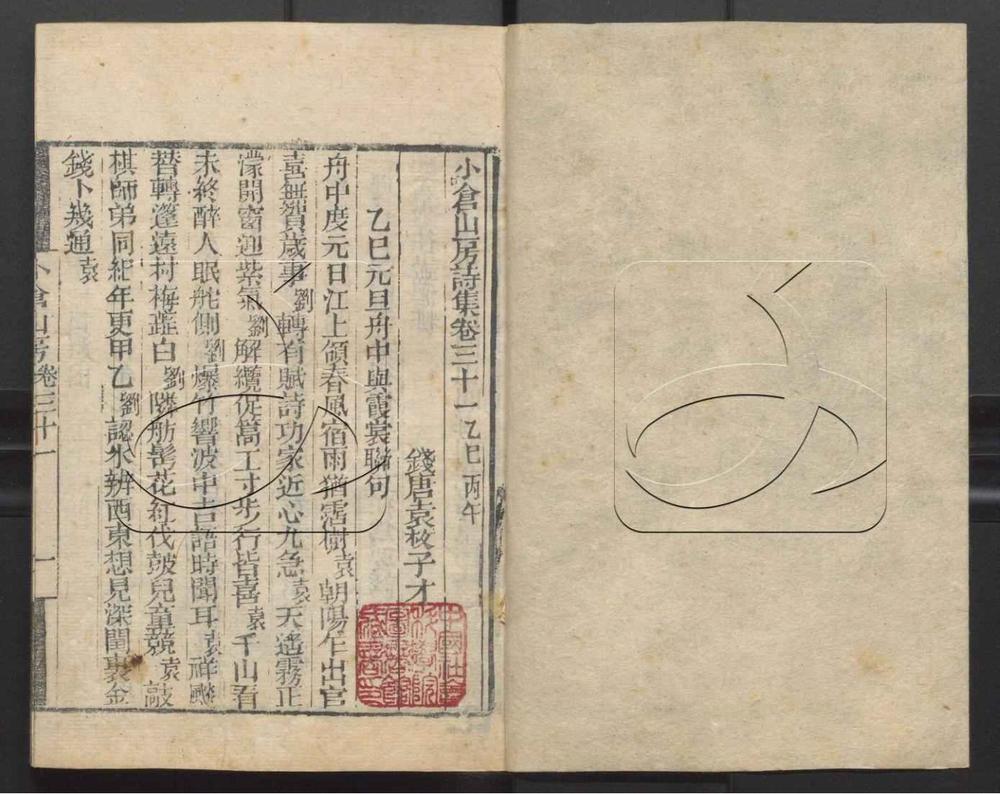 小倉山房詩集卷三十一乙巳丙午
錢唐袁枚子才
乙巳元旦舟中與霞裳聯句
舟中度元日江上領春風宿雨猶霑樹袁朝陽乍出宫
喜無賀歲事劉轉有賦詩功家近心尤急袁天遙霧正
濛開窗迎紫氣劉解纜促篙工寸步行皆喜袁千山看
未終醉人眠舵側劉爆竹響波中吉語時聞耳袁祥颷
替轉篷遠村梅蘂白劉隣舫髻花紅伐皷兒童競袁敲
棋師弟同紀年更甲乙劉認水辨西東想見深閨裏金
錢卜幾通袁
小倉山房卷三十一
一
中國社會科學院圖書館藏書印